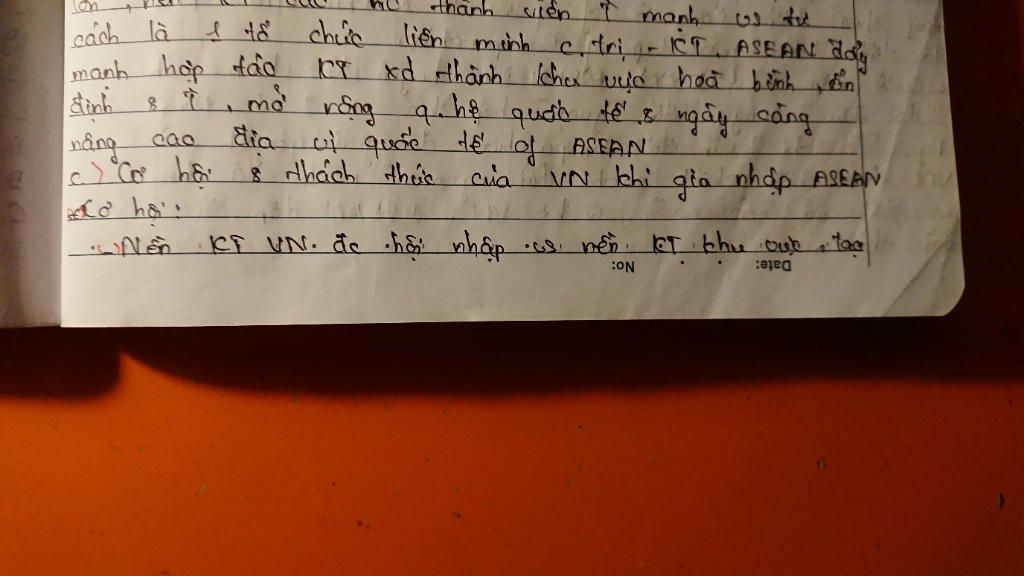 thành viên ↑ mạnh vs tư
cách là 1 tổ chức liên minh c.trị - KT, ASEAN đẩy
mạnh hợp tác KT xd thành khu vực hoà bình, ổn
định & ↑, mở rộng q.hệ quốc tế & ngày càng
nâng cao địa vị quốc tế of ASEAN
c) Cơ hội & thách thức của VN khi gia nhập ASEAN
Cơ hội:
Nền KT VN đc hội nhập vs nền KT khu vực, tạo
No: Date: